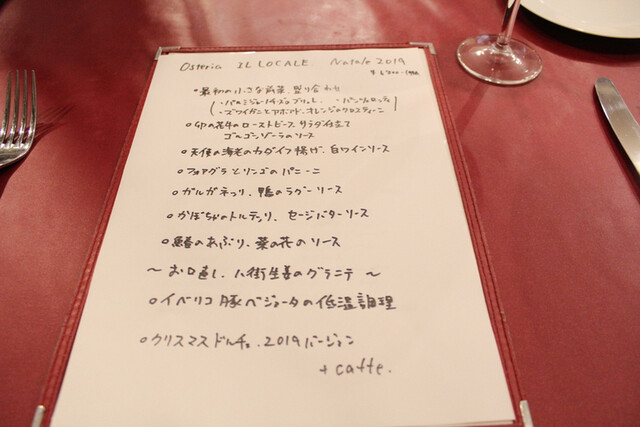 Osteria IL LOCALE Natale 2019
・最初の小さな前菜、盛り合わせ
・パルミジャーノチーズのブリュレ ・パンツェロッティ
・ズワイガニとアボカド、オレンジのクロスティーニ
○卯の花牛のローストビーフ、サラダ仕立て
ゴルゴンゾーラのソース
○天使の海老のカダイフ揚げ、白ワインソース
○フォアグラとリンゴのパニーニ
○ガルガネッリ、鴨のラグーソース
○かぼちゃのトルテッリ、セージバターソース
○鰆のあぶり、菜の花のソース
〜お口直し、八街生姜のグラニテ〜
○イベリコ豚ベジョータの低温調理
○クリスマスドルチェ、2019バージョン
+ caffe.